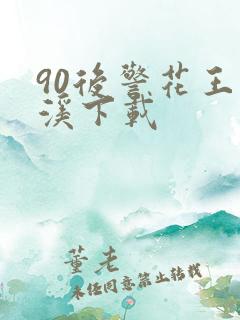 90後警花王
溪下載
董老
未經同意禁止轉載